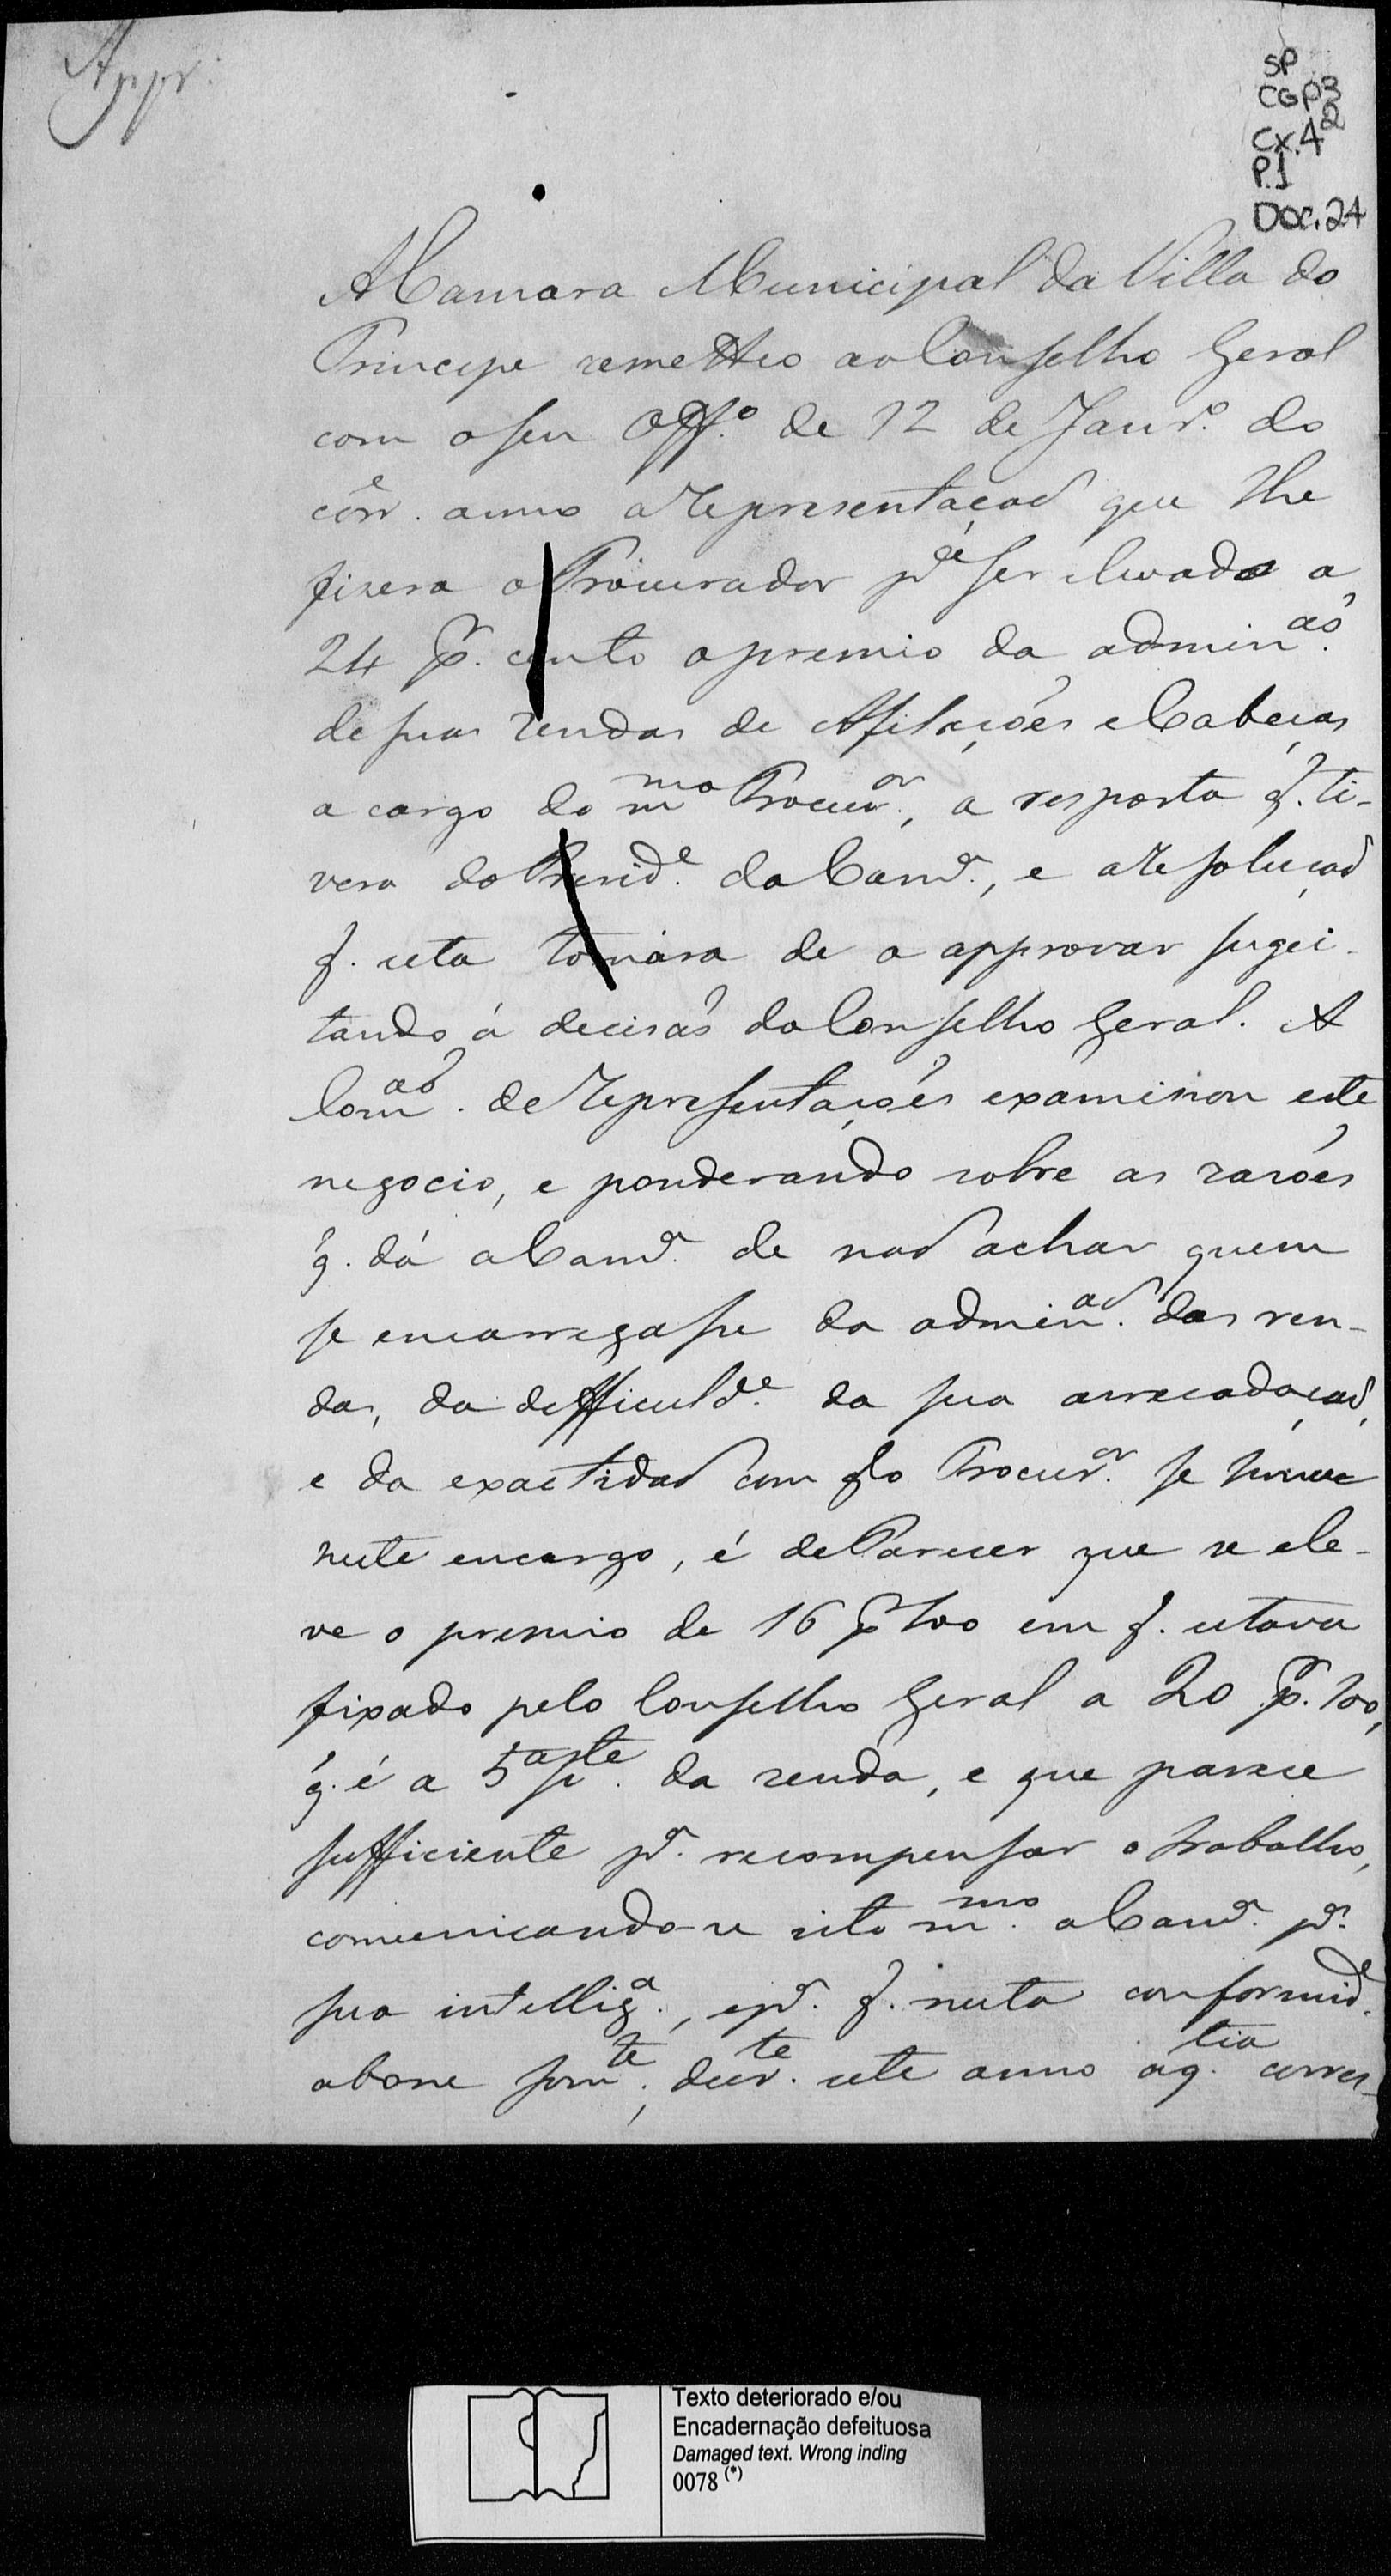 Appr.
SP
CGP3
Cx. 42
P.1
Doc. 24
A Camara Municipal da Villa do
Principe remetteo ao Conselho Geral
com o seu Off.º de 12 de Janr.º do
corr.e anno a Representaçaõ que lhe
fizera o Procurador p.ª ser elevado a
24 p.r cento o premio da admin.aõ
de suas rendas de Afilações e Cabeças
a cargo do m.mo Procur.or, a resposta q̃. ti-
vera do Presid.e da Camr.ª, e a Resoluçaõ
q̃. esta tomára de a approvar sugei-
tando á decisaõ do Conselho Geral. A
Com.aõ de Representações examinou este
negocio, e ponderando sobre as razões
q̃. dá a Camr.ª de naõ achar quem
se encarregasse da admin.aõ das ren-
das, da difficuld.e da sua arrecadaçaõ,
e da exactidaõ com q̃ o Procur.or se houve
neste encargo, é de Parecer que se ele-
ve o premio de 16 p.r 100 em q̃. estava
fixado pelo Conselho Geral a 20 p.r 100,
q̃. é a 5.ª p.te da renda, e que parece
sufficiente p.ª recompensar o trabalho,
comunicando-se isto m.mo a Camr.ª p.ª
sua intellig.ª, e p.ª q̃. nesta conformid.e
abone som.te, desde este anno a q.tia corres-
Texto deteriorado e/ou
Encadernação defeituosa
Damaged text. Wrong inding
0078 (*)